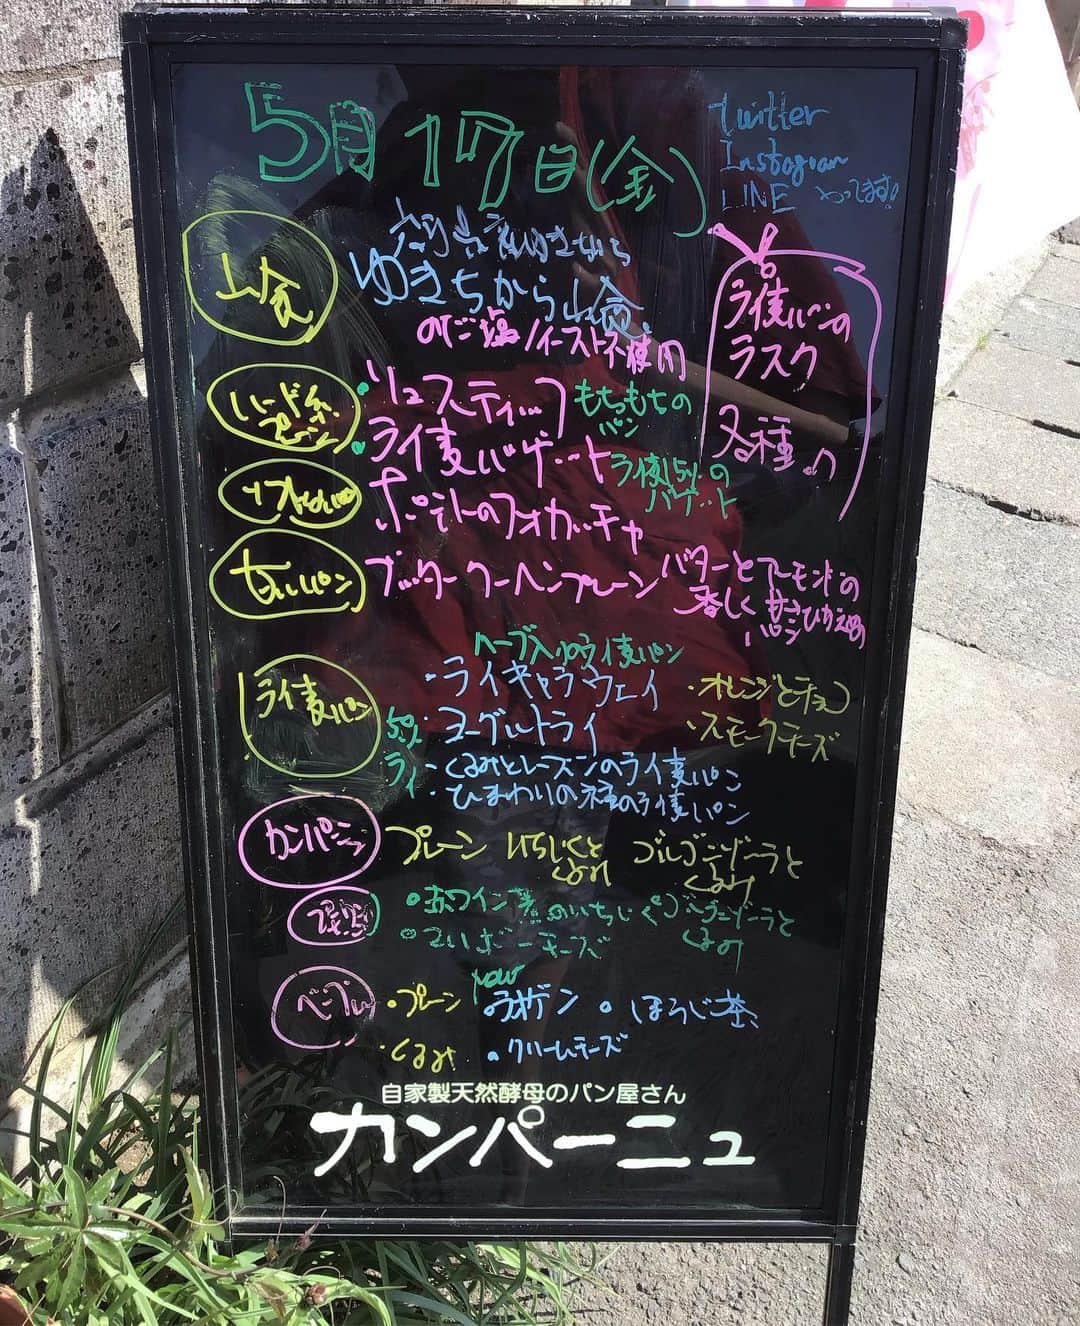 5月17日(金)
twitter
Instagram
LINE やってます!
山食
ゆきちから山食
のだ塩/イースト不使用
ライ麦パンの
ラスク
各種
ハード系
プレーン
リュスティック
もちもちの
パン
ライ麦バゲット
ライ麦15%の
バゲット
ポテトのフォカッチャ
甘いパン
ブッタークーヘンプレーン
バターとアーモンドの
香しく甘さひかえめ
パン
ハーブ入りのライ麦パン
ライ麦パン
・ライキャラウェイ
・オレンジとチョコ
・ヨーグルトライ
・スモークチーズ
・くるみとレーズンのライ麦パン
・ひまわりの種のライ麦パン
カンパーニュ
プレーン
いちじくと
くるみ
ゴルゴンゾーラと
くるみ
プチカンパ
・赤ワイン煮のいちじく
ゴルゴンゾーラと
くるみ
チーズ
ベーグル
・プレーン
new
・ほうじ茶
・くるみ
・クリームチーズ
自家製天然酵母のパン屋さん
カンパーニュ